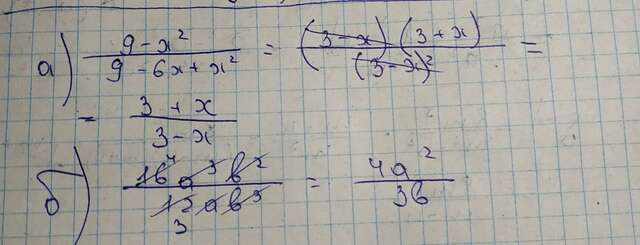 а) (9 - x²)/(9 - 6x + x²) = ((3 - x)(3 + x))/(3 - x)² =
= (3 + x)/(3 - x)
б) (16⁴a³b²)/(12₃ab³) = 4a²/3b